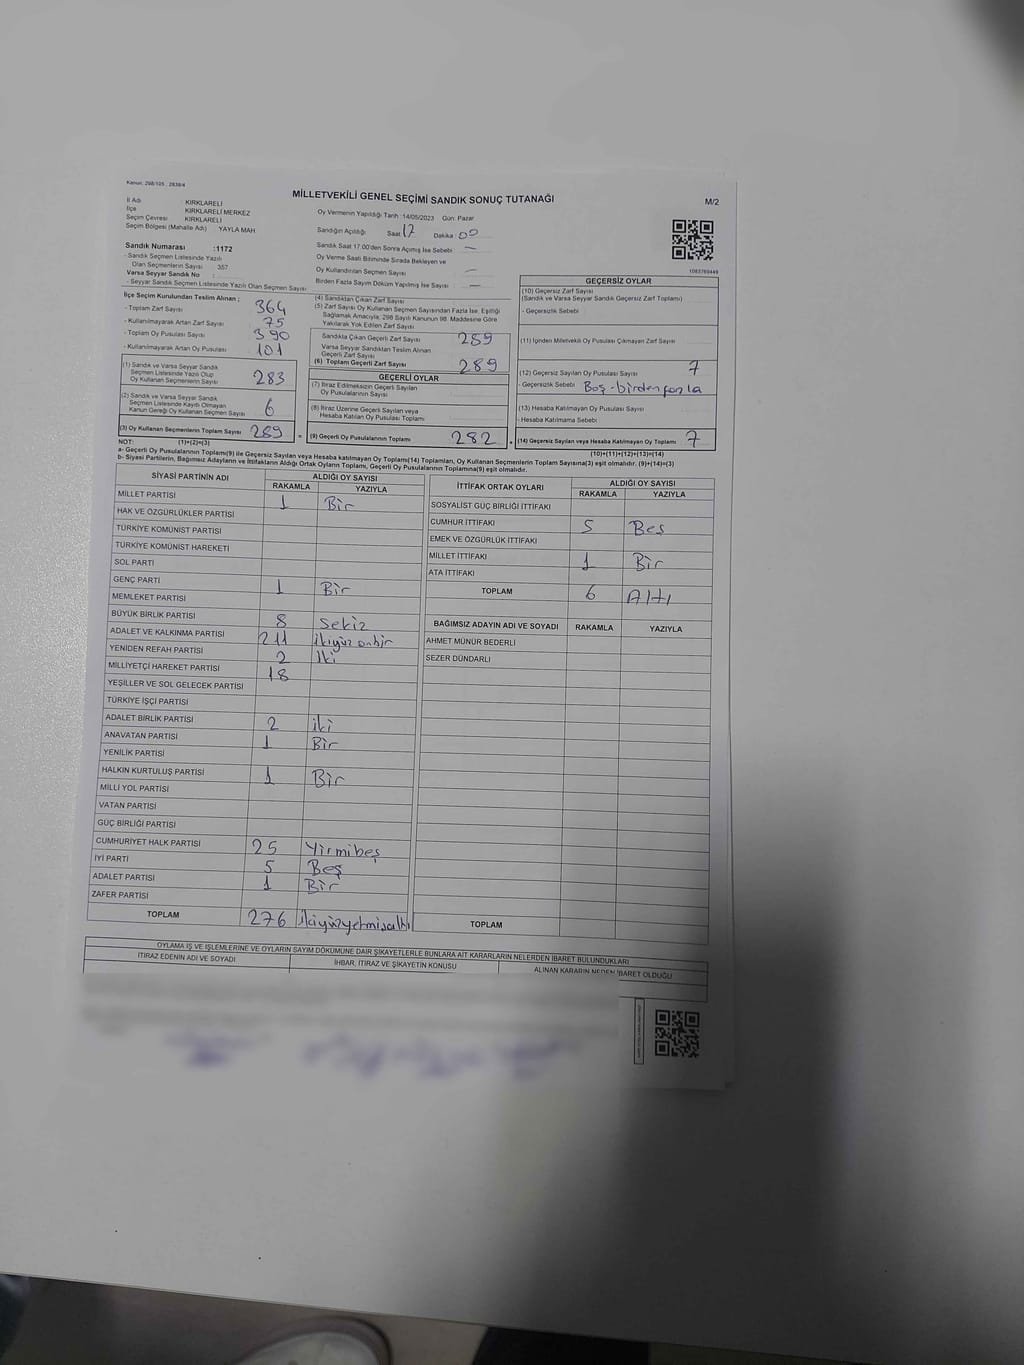 Kanun: 298/105 . 2839/4
MİLLETVEKİLİ GENEL SEÇİMİ SANDIK SONUÇ TUTANAĞI
M/2
İl Adı KIRKLARELİ
İlçe KIRKLARELİ MERKEZ
Seçim Çevresi KIRKLARELİ
Seçim Bölgesi (Mahalle Adı) YAYLA MAH
Sandık Numarası :1172
- Sandık Seçmen Listesinde Yazılı
Olan Seçmenlerin Sayısı : 357
Varsa Seyyar Sandık No :
- Seyyar Sandık Seçmen Listesinde Yazılı Olan Seçmen Sayısı
Oy Vermenin Yapıldığı Tarih :14/05/2023 Gün: Pazar
Sandığın Açıldığı Saat 17 Dakika 00
Sandık Saat 17.00'den Sonra Açılmış İse Sebebi —
Oy Verme Saati Bitiminde Sırada Bekleyen ve
Oy Kullandırılan Seçmen Sayısı —
Birden Fazla Sayım Döküm Yapılmış İse Sayısı —
1083769449
İlçe Seçim Kurulundan Teslim Alınan ;
- Toplam Zarf Sayısı 364
- Kullanılmayarak Artan Zarf Sayısı 75
- Toplam Oy Pusulası Sayısı 390
- Kullanılmayarak Artan Oy Pusulası 101
(1) Sandık ve Varsa Seyyar Sandık
Seçmen Listesinde Yazılı Olup
Oy Kullanan Seçmenlerin Sayısı 283
(2) Sandık ve Varsa Seyyar Sandık
Seçmen Listesinde Kaydı Olmayan
Kanun Gereği Oy Kullanan Seçmen Sayısı 6
(3) Oy Kullanan Seçmenlerin Toplam Sayısı 289
(4) Sandıktan Çıkan Zarf Sayısı
(5) Zarf Sayısı Oy Kullanan Seçmen Sayısından Fazla İse, Eşitliği
Sağlamak Amacıyla; 298 Sayılı Kanunun 98. Maddesine Göre
Yakılarak Yok Edilen Zarf Sayısı
Sandıkta Çıkan Geçerli Zarf Sayısı 289
Varsa Seyyar Sandıktan Teslim Alınan
Geçerli Zarf Sayısı
(6) Toplam Geçerli Zarf Sayısı 289
GEÇERLİ OYLAR
(7) İtiraz Edilmeksizin Geçerli Sayılan
Oy Pusulalarının Sayısı
(8) İtiraz Üzerine Geçerli Sayılan veya
Hesaba Katılan Oy Pusulası Toplamı
= (9) Geçerli Oy Pusulalarının Toplamı 282 +
GEÇERSİZ OYLAR
(10) Geçersiz Zarf Sayısı
(Sandık ve Varsa Seyyar Sandık Geçersiz Zarf Toplamı)
- Geçersizlik Sebebi
(11) İçinden Milletvekili Oy Pusulası Çıkmayan Zarf Sayısı
(12) Geçersiz Sayılan Oy Pusulası Sayısı 7
- Geçersizlik Sebebi Boş-birden fazla
(13) Hesaba Katılmayan Oy Pusulası Sayısı
- Hesaba Katılmama Sebebi
(14) Geçersiz Sayılan veya Hesaba Katılmayan Oy Toplamı 7
NOT: (1)+(2)=(3) (10)+(11)+(12)+(13)=(14)
a- Geçerli Oy Pusulaları Toplamı(9) ile Geçersiz Sayılan veya Hesaba Katılmayan Oy Toplamı(14) Toplamları, Oy Kullanan Seçmenlerin Toplam Sayısına(3) eşit olmalıdır. (9)+(14)=(3)
b- Siyasi Partilerin, Bağımsız Adayların ve İttifakların Aldığı Ortak Oyların Toplamı, Geçerli Oy Pusulalarının Toplamına(9) eşit olmalıdır.
SİYASİ PARTİNİN ADI ALDIĞI OY SAYISI
RAKAMLA YAZIYLA
MİLLET PARTİSİ 1 Bir
HAK VE ÖZGÜRLÜKLER PARTİSİ
TÜRKİYE KOMÜNİST PARTİSİ
TÜRKİYE KOMÜNİST HAREKETİ
SOL PARTİ
GENÇ PARTİ 1 Bir
MEMLEKET PARTİSİ
BÜYÜK BİRLİK PARTİSİ 8 Sekiz
ADALET VE KALKINMA PARTİSİ 211 ikiyüz onbir
YENİDEN REFAH PARTİSİ 2 İki
MİLLİYETÇİ HAREKET PARTİSİ 18
YEŞİLLER VE SOL GELECEK PARTİSİ
TÜRKİYE İŞÇİ PARTİSİ
ADALET BİRLİK PARTİSİ 2 iki
ANAVATAN PARTİSİ 1 Bir
YENİLİK PARTİSİ
HALKIN KURTULUŞ PARTİSİ 1 Bir
MİLLİ YOL PARTİSİ
VATAN PARTİSİ
GÜÇ BİRLİĞİ PARTİSİ
CUMHURİYET HALK PARTİSİ 25 Yirmibeş
İYİ PARTİ 5 Beş
ADALET PARTİSİ 1 Bir
ZAFER PARTİSİ
TOPLAM 276 ikiyüzyetmişaltı
İTTİFAK ORTAK OYLARI ALDIĞI OY SAYISI
RAKAMLA YAZIYLA
SOSYALİST GÜÇ BİRLİĞİ İTTİFAKI
CUMHUR İTTİFAKI 5 Beş
EMEK VE ÖZGÜRLÜK İTTİFAKI
MİLLET İTTİFAKI 1 Bir
ATA İTTİFAKI
TOPLAM 6 Altı
BAĞIMSIZ ADAYIN ADI VE SOYADI RAKAMLA YAZIYLA
AHMET MÜNÜR BEDERLİ
SEZER DÜNDARLI
TOPLAM
OYLAMA İŞ VE İŞLEMLERİNE VE OYLARIN SAYIM DÖKÜMÜNE DAİR ŞİKAYETLERLE BUNLARA AİT KARARLARIN NELERDEN İBARET BULUNDUKLARI
İTİRAZ EDENİN ADI VE SOYADI İHBAR, İTİRAZ VE ŞİKAYETİN KONUSU ALINAN KARARIN NEDEN İBARET OLDUĞU